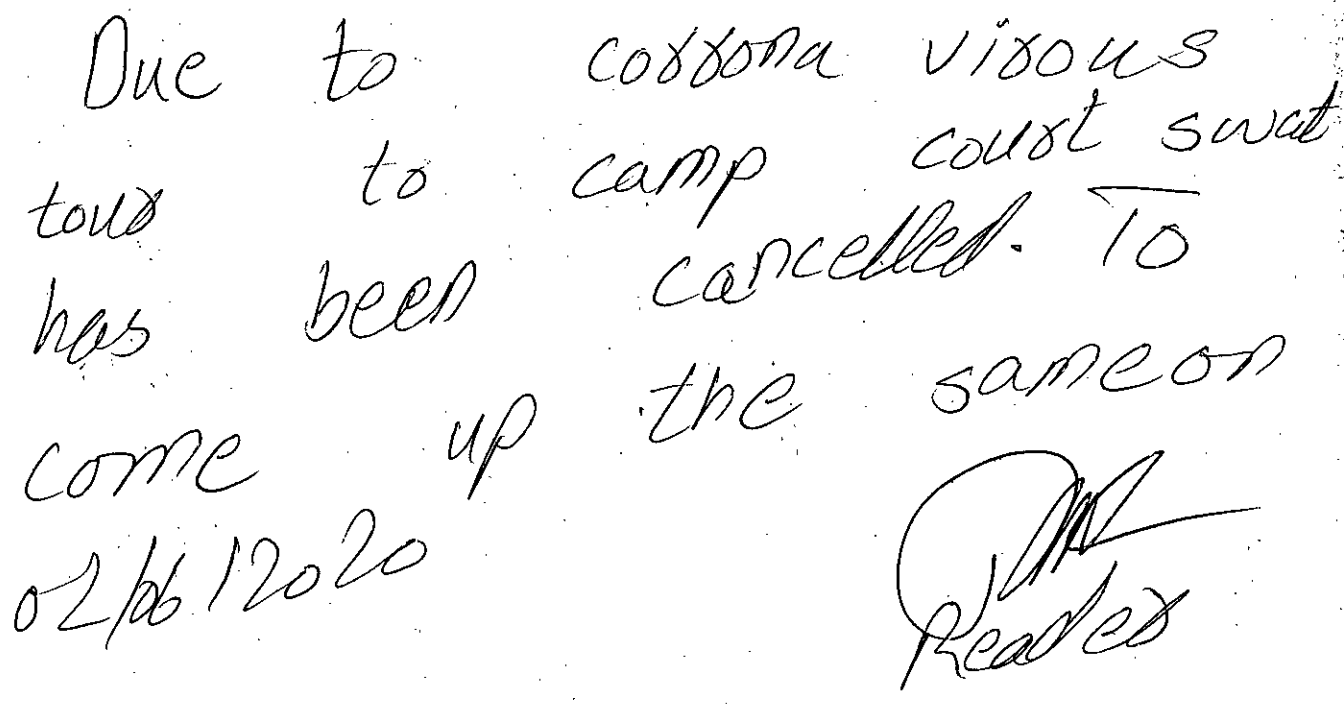 Due to corrona virous
tour to camp court swat
has been cancelled. To
come up the same on
02/06/2020
Reader